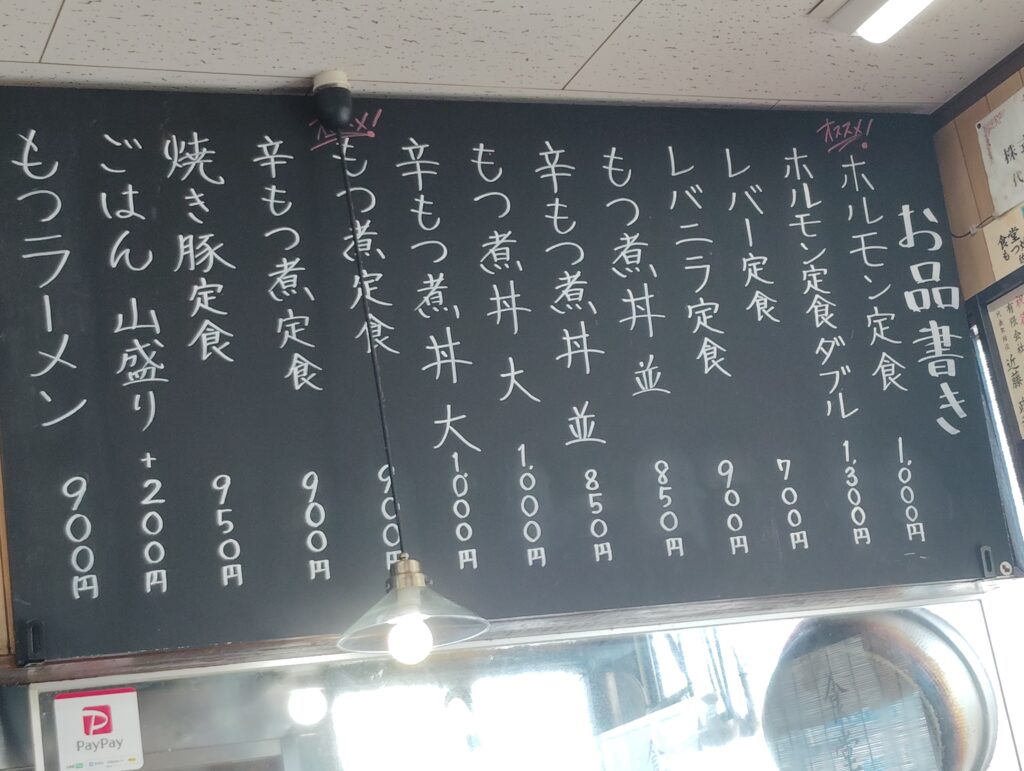 お品書き
オススメ!
ホルモン定食 1,000円
ホルモン定食ダブル 1,300円
レバー定食 700円
レバニラ定食 900円
もつ煮丼 並 850円
辛もつ煮丼 並 850円
もつ煮丼 大 1,000円
辛もつ煮丼 大 1,000円
オススメ!
もつ煮定食 900円
辛もつ煮定食 900円
焼き豚定食 950円
ごはん 山盛り +200円
もつラーメン 900円
株
代
食堂
もつ
有限会社 近藤
PayPay
食堂